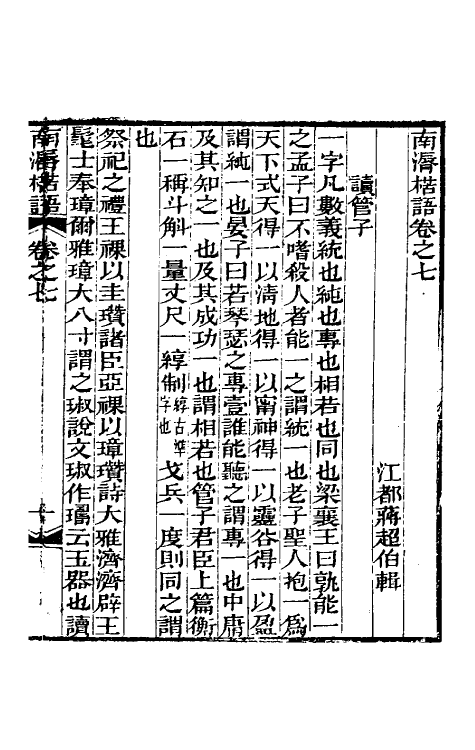 南漘楛語卷之七
江都蔣超伯輯
讀管子
一字凡數義統也純也專也相若也同也梁襄王曰孰能一
之孟子曰不嗜殺人者能一之謂統一也老子聖人抱一爲
天下式天得一以淸地得一以甯神得一以靈谷得一以盈
謂純一也晏子曰若琴瑟之專壹誰能聽之謂專一也中庸
及其知之一也及其成功一也謂相若也管子君臣上篇衡
石一稱斗斛一量丈尺一綧制綧古準字也戈兵一度則同之謂
也
祭祀之禮王祼以圭瓚諸臣亞祼以璋瓚詩大雅濟濟辟王
髦士奉璋爾雅璋大八寸謂之琡說文琡作璹云玉器也讀
南漘楛語 卷之七 一